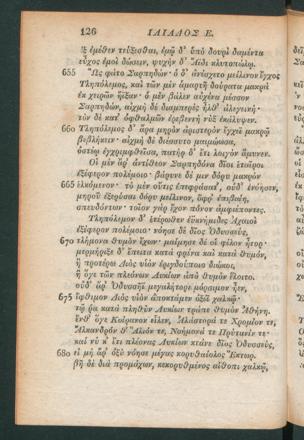 126 ΙΛΙΑΔΟΣ Ε.
ἐξ ἐμέθεν τεύξεσθαι, ἐμῷ δ' ὑπὸ δουρὶ δαμέντα
εὖχος ἐμοὶ δώσειν, ψυχὴν δ' Ἄϊδι κλυτοπώλῳ.
655 Ὣς φάτο Σαρπηδών· ὁ δ' ἀνέσχετο μείλινον ἔγχος
Τληπόλεμος, καὶ τῶν μὲν ἁμαρτῆ δούρατα μακρὰ
ἐκ χειρῶν ἤϊξαν· ὁ μὲν βάλεν αὐχένα μέσσον
Σαρπηδών, αἰχμὴ δὲ διαμπερὲς ἦλθ' ἀλεγεινή·
τὸν δὲ κατ' ὀφθαλμῶν ἐρεβεννὴ νὺξ ἐκάλυψεν.
660 Τληπόλεμος δ' ἄρα μηρὸν ἀριστερὸν ἔγχεϊ μακρῷ
βεβλήκειν· αἰχμὴ δὲ διέσσυτο μαιμώωσα,
ὀστέῳ ἐγχριμφθεῖσα, πατὴρ δ' ἔτι λοιγὸν ἄμυνεν.
Οἱ μὲν ἄρ' ἀντίθεον Σαρπηδόνα δῖοι ἑταῖροι
ἐξέφερον πολέμοιο· βάρυνε δέ μιν δόρυ μακρὸν
665 ἑλκόμενον· τὸ μὲν οὔτις ἐπεφράσατ', οὐδ' ἐνόησεν,
μηροῦ ἐξερύσαι δόρυ μείλινον, ὄφρ' ἐπιβαίη,
σπευδόντων· τοῖον γὰρ ἔχον πόνον ἀμφιέποντες.
Τληπόλεμον δ' ἑτέρωθεν ἐϋκνήμιδες Ἀχαιοὶ
ἐξέφερον πολέμοιο· νόησε δὲ δῖος Ὀδυσσεύς,
670 τλήμονα θυμὸν ἔχων· μαίμησε δέ οἱ φίλον ἦτορ·
μερμήριξε δ' ἔπειτα κατὰ φρένα καὶ κατὰ θυμόν,
ἢ προτέρω Διὸς υἱὸν ἐριγδούποιο διώκοι,
ἢ ὅγε τῶν πλεόνων Λυκίων ἀπὸ θυμὸν ἕλοιτο.
οὐδ' ἄρ' Ὀδυσσῆϊ μεγαλήτορι μόρσιμον ἦεν,
675 ἴφθιμον Διὸς υἱὸν ἀποκτάμεν ὀξέϊ χαλκῷ·
τῷ ῥα κατὰ πληθὺν Λυκίων τράπε θυμὸν Ἀθήνη.
ἔνθ' ὅγε Κοίρανον εἷλεν, Ἀλάστορά τε Χρομίον τε,
Ἄλκανδρόν θ' Ἅλιόν τε, Νοήμονά τε Πρύτανίν τε·
καὶ νύ κ' ἔτι πλέονας Λυκίων κτάνε δῖος Ὀδυσσεύς,
680 εἰ μὴ ἄρ' ὀξὺ νόησε μέγας κορυθαίολος Ἕκτωρ.
βῆ δὲ διὰ προμάχων, κεκορυθμένος αἴθοπι χαλκῷ,